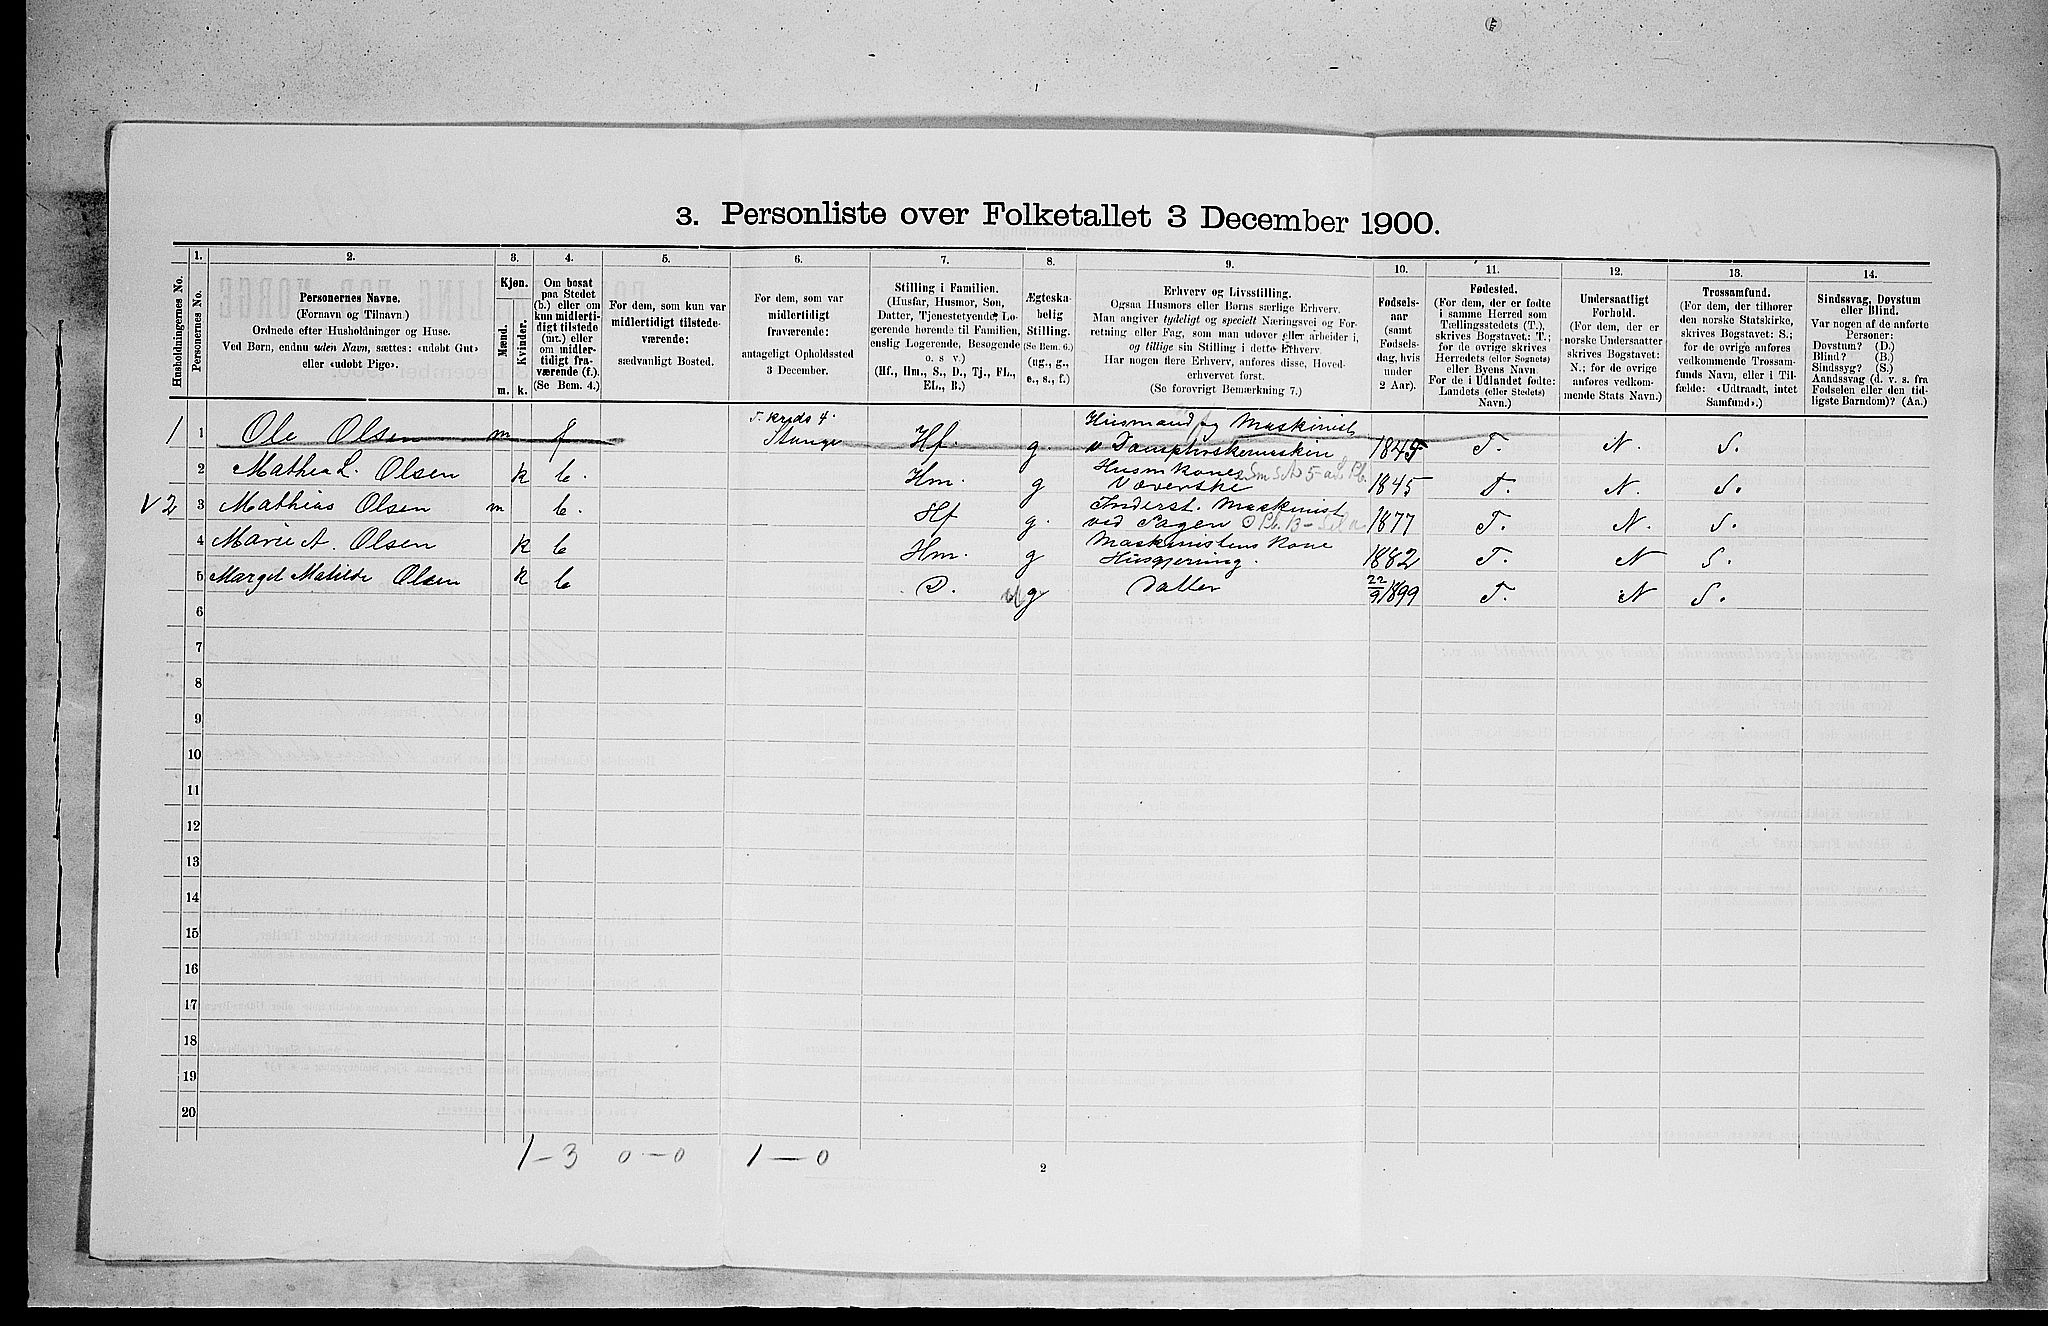 3. Personliste over Folketallet 3 December 1900.
Husholdningernes No.
1.
Personernes No.
2.
Personernes Navne.
(Fornavn og Tilnavn.)
Ordnede efter Husholdninger og Huse.
Ved Børn, endnu uden Navn, sættes: «udøbt Gut»
eller «udøbt Pige».
3.
Kjøn.
Mænd.
Kvinder.
m.
k.
4.
Om bosat
paa Stedet
(b.) eller om
kun midlerti-
digt tilstede
(mt.) eller
om midler-
tidigt fra-
værende (f.).
(Se Bem. 4.)
5.
For dem, som kun var
midlertidigt tilstede-
værende:
sædvanligt Bosted.
6.
For dem, som var
midlertidigt
fraværende:
antageligt Opholdssted
3 December.
7.
Stilling i Familien.
(Husfar, Husmor, Søn,
Datter, Tjenestetyende, Lo-
gerende hørende til Familien,
enslig Logerende, Besøgende
o. s v.)
(Hf., Hm., S., D., Tj., FL.,
EL., B.)
8.
Ægteska-
belig
Stilling.
(Se Bem. 6.)
(ug., g.,
e., s., f.)
9.
Erhverv og Livsstilling.
Ogsaa Husmors eller Børns særlige Erhverv.
Man angiver tydeligt og specielt Næringsvei og For-
retning eller Fag, som man udøver eller arbeider i,
og tillige sin Stilling i dette Erhverv.
Har nogen flere Erhverv, anføres disse, Hoved-
erhvervet først.
(Se forøvrigt Bemærkning 7.)
10.
Fødsels-
aar
(samt
Fødsels-
dag, hvis
under
2 Aar).
11.
Fødested.
(For dem, der er fødte
i samme Herred som
Tællingsstedets (T.),
skrives Bogstavet: T.;
for de øvrige skrives
Herredets (eller Sognets)
eller Byens Navn.
For de i Udlandet fødte:
Landets (eller Stedets)
Navn.)
12.
Undersaatligt
Forhold.
(For dem, der er
norske Undersaatter
skrives Bogstavet:
N.; for de øvrige
anføres vedkom-
mende Stats Navn.)
13.
Trossamfund.
(For dem, der tilhører
den norske Statskirke,
skrives Bogstavet: S.;
for de øvrige anføres
vedkommende Trossam-
funds Navn, eller i Til-
fælde: «Udtraadt, intet
Samfund».)
14.
Sindssvag, Døvstum
eller Blind.
Var nogen af de anførte
Personer:
Døvstum? (D.)
Blind? (B.)
Sindssyg? (S.)
Aandssvag (d. v. s. fra
Fødselen eller den tid-
ligste Barndom)? (Aa.)
1 1 Ole Olsen m f T. Kreds 4. Stange Hf. g. Husmand og Maskinist
v Damptærskemaskin 1845 T. N S.
2 Mathea L. Olsen k b. Hm. g Husm Kone
Væverske 1845 T. N. S.
v 2 3 Mathias Olsen m b. Hf g. Inderst. Maskinist
ved Sagen 1877 T. N. S.
4 Marie A. Olsen k b Hm. g Maskinistens Kone
Husgjerning. 1882 T. N S.
5 Margit Matilde Olsen k b D. ug Datter 22/9 1899 T. N S.
6
7
8
9
10
11
12
13
14
15
16
17
18
19
20
1 – 3 0 – 0 1 – 0
2